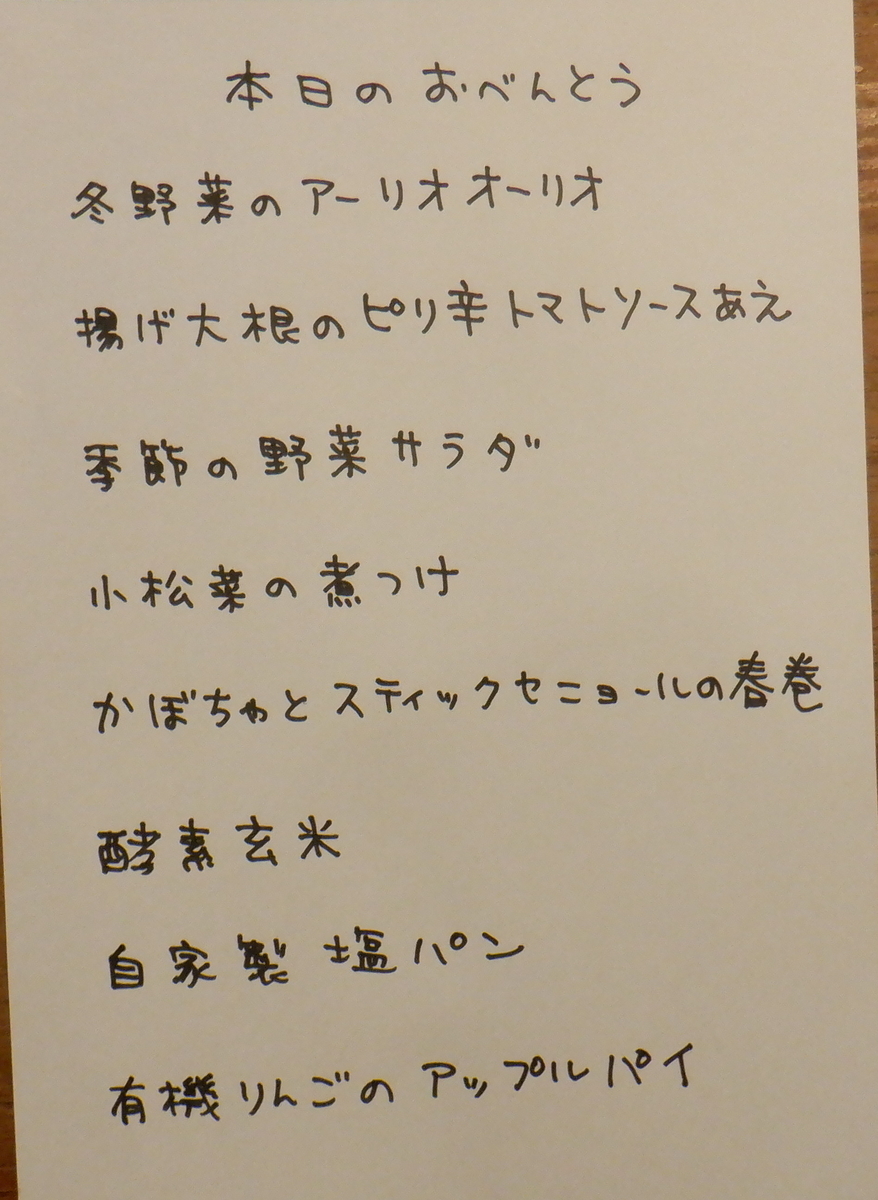 本日のおべんとう
冬野菜のアーリオオーリオ
揚げ大根のピリ辛トマトソースあえ
季節の野菜サラダ
小松菜の煮つけ
かぼちゃとスティックセニョールの春巻
酵素玄米
自家製塩パン
有機りんごのアップルパイ